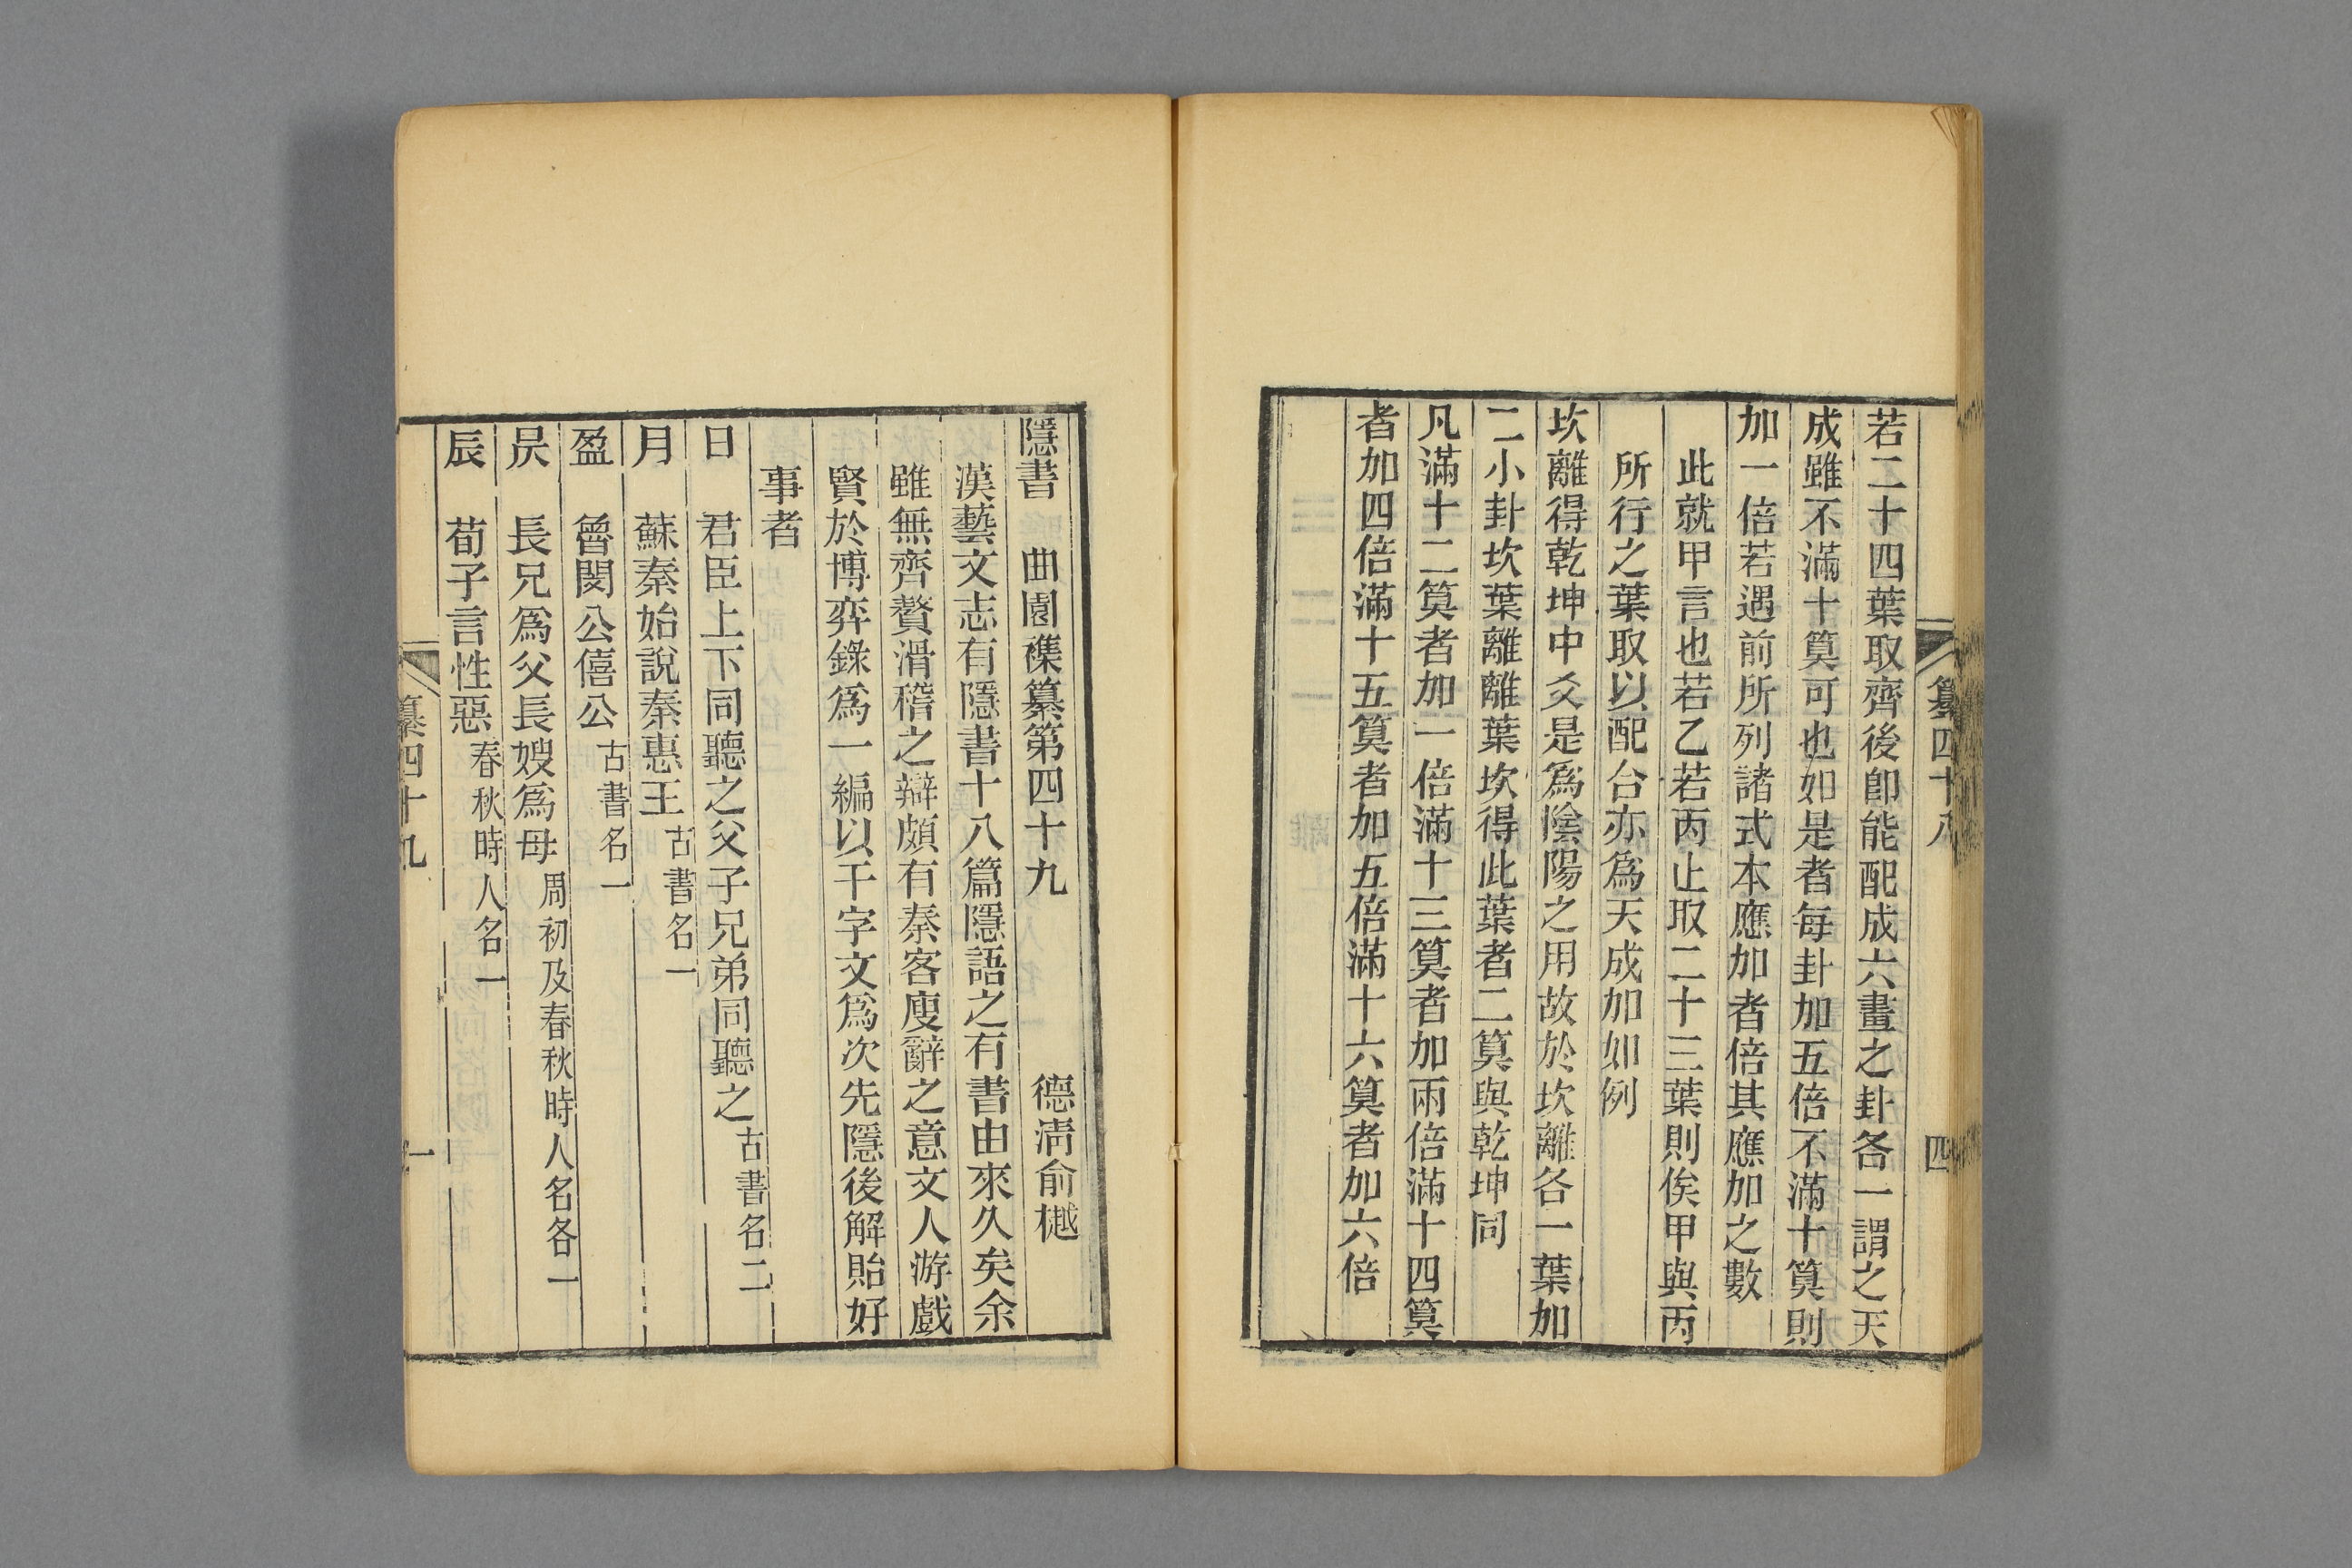 纂四十八
四
若二十四葉取齊後卽能配成六畫之卦各一謂之天
成雖不滿十筭可也如是者每卦加五倍不滿十筭則
加一倍若遇前所列諸式本應加者倍其應加之數
此就甲言也若乙若丙止取二十三葉則俟甲與丙
所行之葉取以配合亦爲天成加如例
坎離得乾坤中爻是爲陰陽之用故於坎離各一葉加
二小卦坎葉離離葉坎得此葉者二筭與乾坤同
凡滿十二筭者加一倍滿十三筭者加兩倍滿十四筭
者加四倍滿十五筭者加五倍滿十六筭者加六倍
隱書 曲園襍纂第四十九 德淸俞樾
漢藝文志有隱書十八篇隱語之有書由來久矣余
雖無齊贅滑稽之辯頗有秦客廋辭之意文人游戲
賢於博弈錄爲一編以千字文爲次先隱後解貽好
事者
日 君臣上下同聽之父子兄弟同聽之古書名二
月 蘇秦始說秦惠王古書名一
盈 魯閔公僖公古書名一
昃 長兄爲父長嫂爲母周初及春秋時人名各一
辰 荀子言性惡春秋時人名一
纂四十九
一